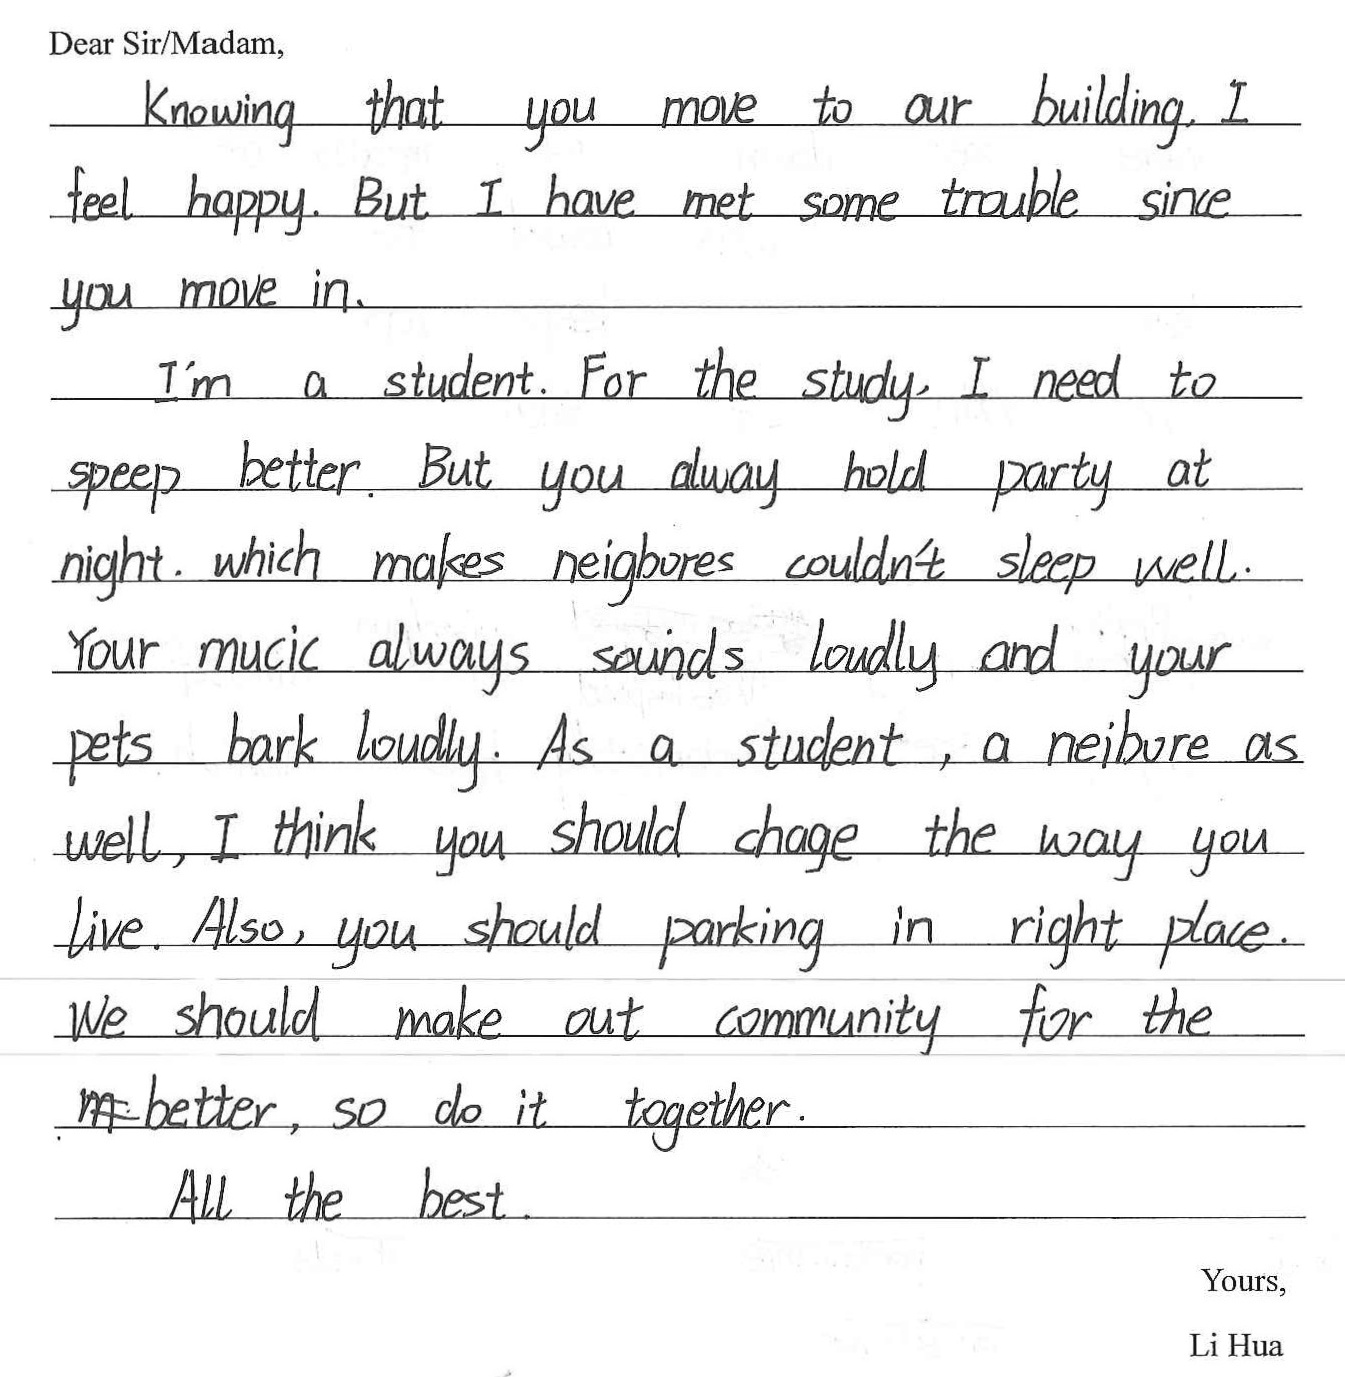 Dear Sir/Madam,
Knowing that you move to our building, I
feel happy. But I have met some trouble since
you move in.
I'm a student. For the study, I need to
speep better. But you alway hold party at
night. which makes neigbores couldn't sleep well.
Your mucic always sounds loudly and your
pets bark loudly. As a student, a neibore as
well, I think you should chage the way you
live. Also, you should parking in right place.
We should make out community for the
better, so do it together.
All the best.
Yours,
Li Hua